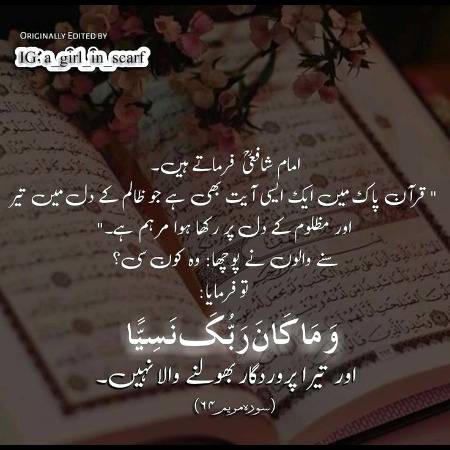 ORIGINALLY EDITED BY
IG: a_girl_in_scarf
امام شافعیؒ فرماتے ہیں۔
" قرآن پاک میں ایک ایسی آیت بھی ہے جو ظالم کے دل میں تیر
اور مظلوم کے دل پر رکھا ہوا مرہم ہے۔"
سننے والوں نے پوچھا: وہ کون سی؟
تو فرمایا:
وَمَا كَانَ رَبُّكَ نَسِيًّا
اور تیرا پروردگار بھولنے والا نہیں۔
(سورہ مریم ۶۴)